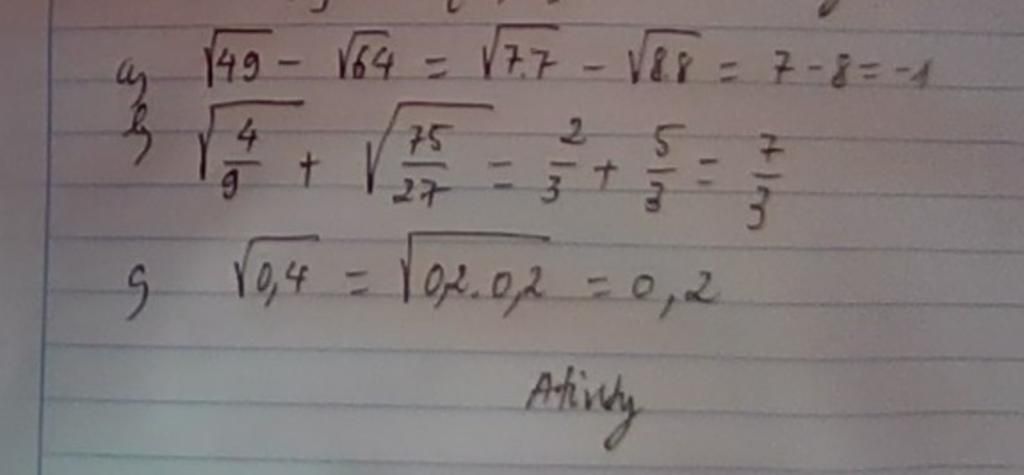 a) √49 - √64 = √7.7 - √8.8 = 7 - 8 = -1
b) √4/9 + √75/27 = 2/3 + 5/3 = 7/3
c) √0,4 = √0,2.0,2 = 0,2